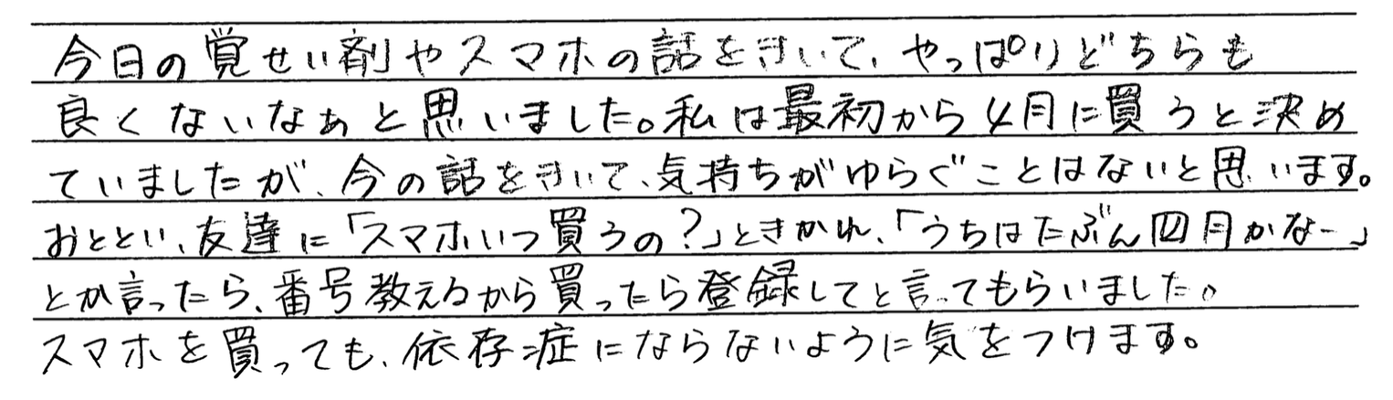 今日の覚せい剤やスマホの話をきいて、やっぱりどちらも
良くないなぁと思いました。私は最初から4月に買うと決め
ていましたが、今の話をきいて、気持ちがゆらぐことはないと思います。
おととい、友達に「スマホいつ買うの？」ときかれ、「うちはたぶん四月かなー」
とか言ったら、番号教えるから買ったら登録してと言ってもらいました。
スマホを買っても、依存症にならないように気をつけます。